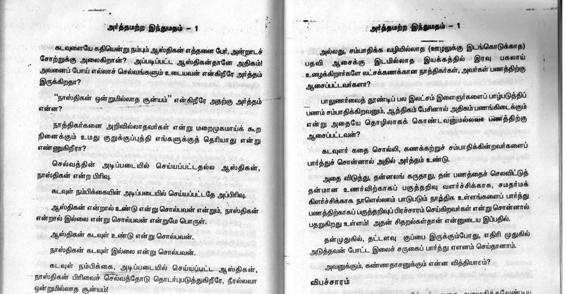 அர்த்தமற்ற இந்துமதம் – 1
கடவுளையே கதியென்று நம்பும் ஆஸ்திகன் எத்தனை பேர், அன்றாடச்
சோற்றுக்கு அலைகிறான்? அப்படிப்பட்ட ஆஸ்திகன்தானே அதிகம்!
அவனைப் போய் எல்லாச் செல்வங்களும் உடையவன் என்கிறீரே அர்த்தம்
இருக்கிறதா?
"நாஸ்திகன் ஒன்றுமில்லாத சூன்யம்" என்கிறீரே அதற்கு அர்த்தம்
என்ன?
நாத்திகர்களை அறிவில்லாதவர்கள் என்று மறைமுகமாய்க் கூற
நினைக்கும் உமது குறுக்குப்புத்தி எங்களுக்குத் தெரியாது என்று
எண்ணுகிறீரா?
செல்வத்தின் அடிப்படையில் செய்யப்பட்டதல்ல ஆஸ்திகன்,
நாஸ்திகன் என்ற பிரிவு.
கடவுள் நம்பிக்கையின் அடிப்படையில் செய்யப்பட்டதே அப்பிரிவு.
ஆஸ்திகன் என்றால் உண்டு என்று சொல்பவன் என்றும், நாஸ்திகன்
என்றால் இல்லை என்று சொல்பவன் என்றுமே பொருள்.
ஆஸ்திகன் கடவுள் உண்டு என்று சொல்பவன்.
நாஸ்திகன் கடவுள் இல்லை என்று சொல்பவன்.
கடவுள் நம்பிக்கை, அடிப்படையில் செய்யப்பட்ட ஆஸ்திகன்,
நாஸ்திகன் பிரிவைச் செல்வத்தோடு தொடர்புபடுத்துகிறீரே, நீரல்லவா
ஒன்றுமில்லாத சூன்யம்!
அர்த்தமற்ற இந்துமதம் – 1
அல்லது, சம்பாதிக்க வழியில்லாத (ஊழலுக்கு இடங்கொடுக்காத)
பதவி ஆசைக்கு இடமில்லாத இயக்கத்தில் இரவு பகலாய்
உழைக்கிறார்களே லட்சக்கணக்கான நாத்திகர்கள், அவர்கள் பணத்திற்கு
ஆசைப்பட்டவர்களா?
பாலுணர்வைத் தூண்டிப் பல இலட்சம் இளைஞர்களைப் பாழ்படுத்திப்
பணம் சம்பாதிக்கிறவனும், ஆத்திகம் பேசினால் அதிகம் பணங்கிடைக்கும்
என்று அதையே தொழிலாகக் கொண்டவனுமல்லவா பணத்திற்கு
ஆசைப்பட்டவன்?
கடவுளர் கதை சொல்லி, கணக்கற்றுச் சம்பாதிக்கின்றவர்களைப்
பார்த்துச் சொன்னால் அதில் அர்த்தம் உண்டு.
அதை விடுத்து, தன்னலங் கருதாது, தன் பணத்தைச் செலவிட்டுத்
தன்மான உணர்விற்காகப் பகுத்தறிவு வளர்ச்சிக்காக, சமதர்மக்
கிளர்ச்சிக்காக நாளெல்லாம் பாடுபடும் நாத்திக உள்ளங்களைப் பார்த்து
பணத்திற்காகப் பகுத்தறிவுப் பிரச்சாரம் செய்கிறவர்கள் என்று சொன்னால்
பதறுகிறது உள்ளம்! அதன் சிதறல்கள்தான் என்னுடைய இப்பதில்.
தன்முதுகில், தட்டளவு குப்பை இருக்கும்போது, எதிரி முதுகில்
அடுத்தவன் போட்ட இலைச் சருகைப் பார்த்து ஏளனம் செய்தானாம்.
அவனுக்கும், கண்ணதாசனுக்கும் என்ன வித்தியாசம்?
விபச்சாரம்